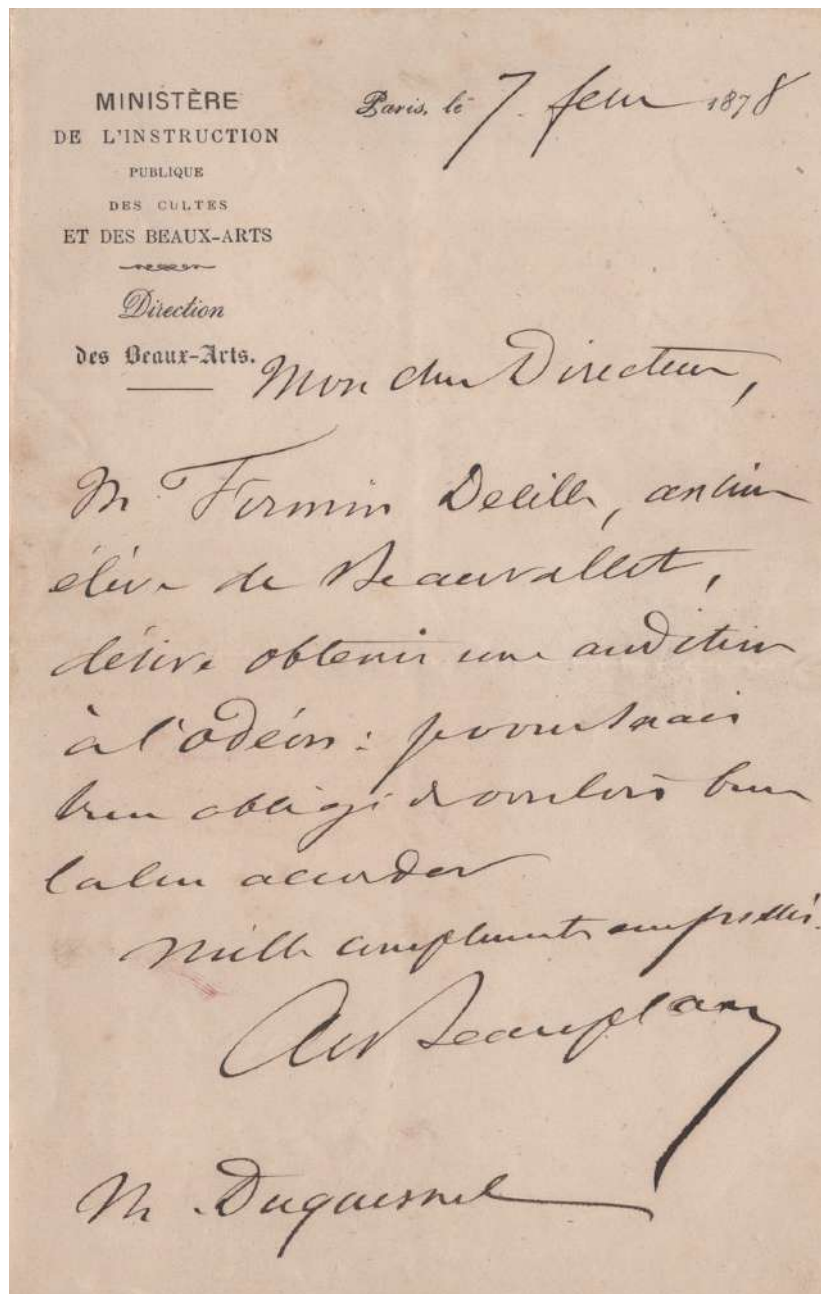 MINISTÈRE
DE L'INSTRUCTION
PUBLIQUE
DES CULTES
ET DES BEAUX-ARTS
Direction
des Beaux-Arts.
Paris, le 7. fevr 1878
Mon cher Directeur,
M. Firmin Delille, ancien
élève de Beauvallet,
désire obtenir une audition
à l'odéon : je vous serais
bien obligé de vouloir bien
la lui accorder
Mille compliments empressés.
A de Beauplan
M. Duquesnel